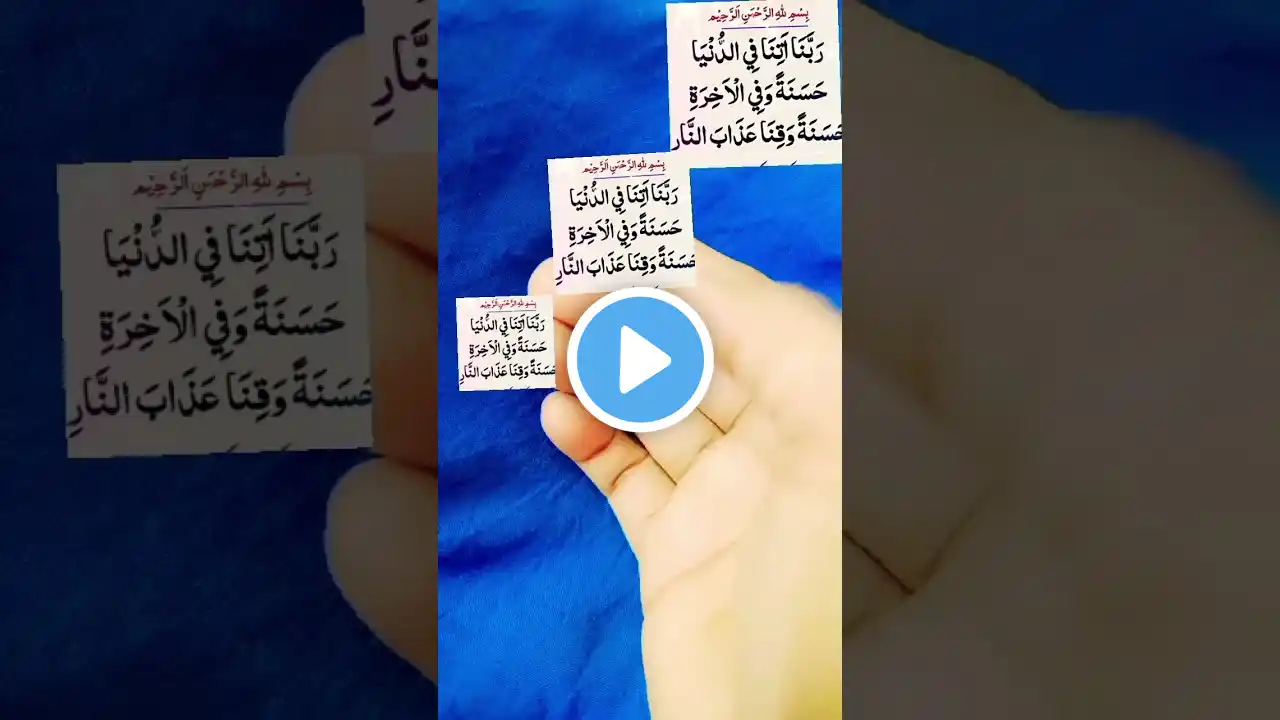 بِسْمِ لٰلهِ الرَّحْمٰنِ اَلرَّحِيْمِ
رَبَّنَا اَتِنَا فِي الدُّنْيَا
حَسَنَةً وَفِي الْاَخِرَةِ
حَسَنَةً وَقِنَا عَذَابَ النَّارِ
بِسْمِ لٰلهِ الرَّحْمٰنِ اَلرَّحِيْمِ
رَبَّنَا اَتِنَا فِي الدُّنْيَا
حَسَنَةً وَفِي الْاَخِرَةِ
حَسَنَةً وَقِنَا عَذَابَ النَّارِ
بِسْمِ لٰلهِ الرَّحْمٰنِ اَلرَّحِيْمِ
رَبَّنَا اَتِنَا فِي الدُّنْيَا
حَسَنَةً وَفِي الْاَخِرَةِ
حَسَنَةً وَقِنَا عَذَابَ النَّارِ
النَّارِ
بِسْمِ لٰلهِ الرَّحْمٰنِ اَلرَّحِيْمِ
رَبَّنَا اَتِنَا فِي الدُّنْيَا
حَسَنَةً وَفِي الْاَخِرَةِ
حَسَنَةً وَقِنَا عَذَابَ النَّارِ